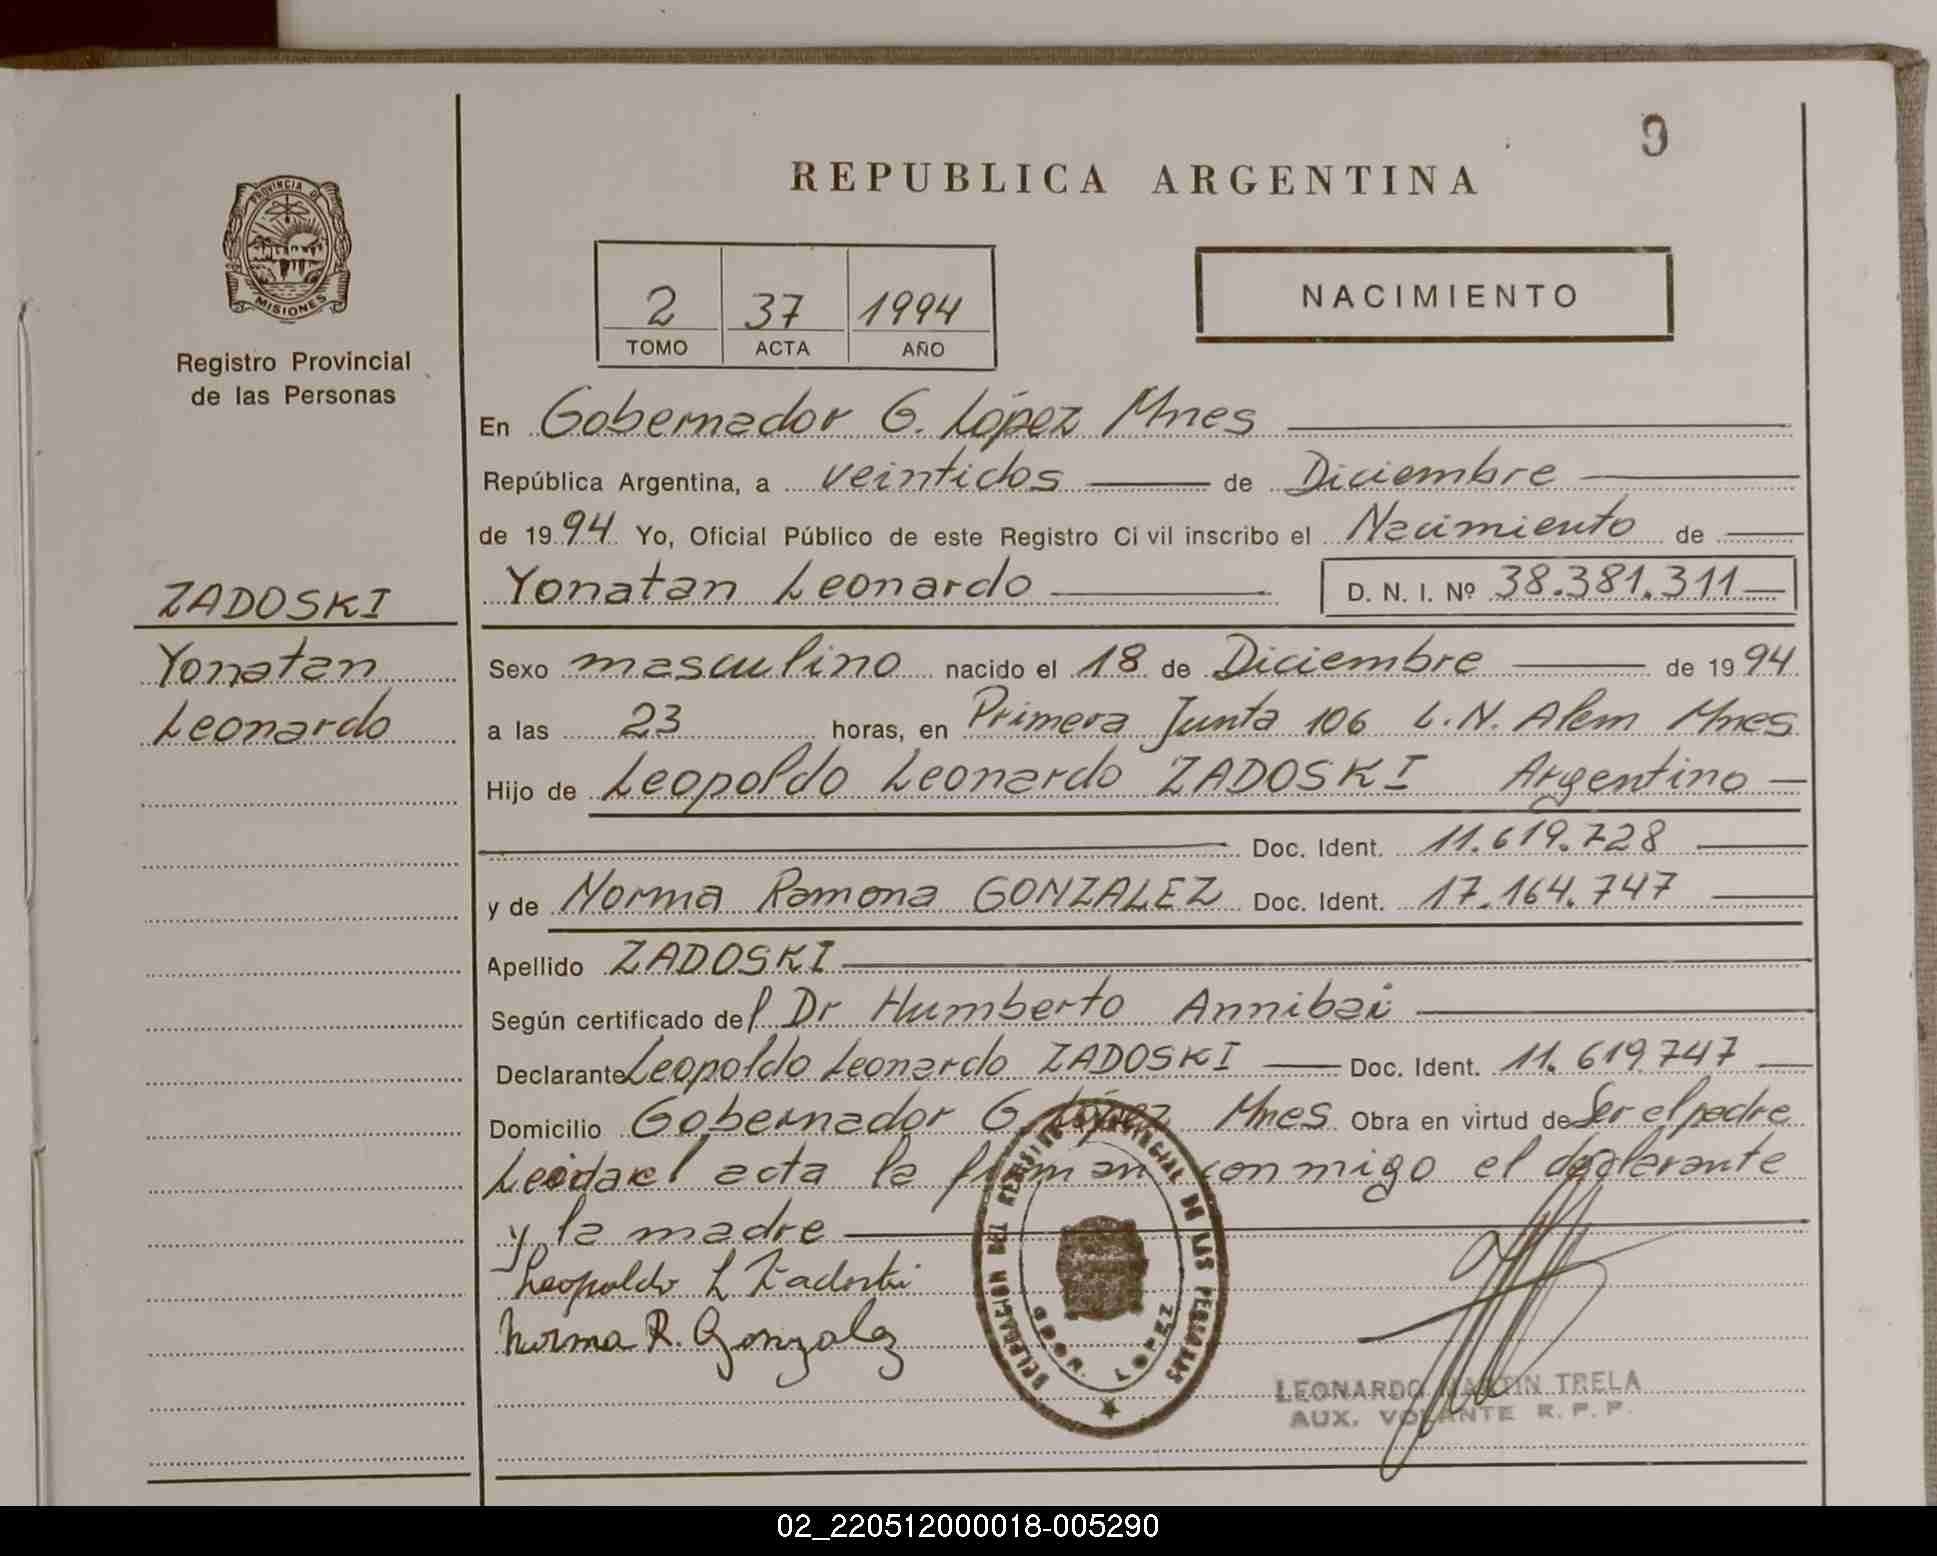 9
REPUBLICA ARGENTINA
PROVINCIA DE
MISIONES
Registro Provincial
de las Personas
2 37 1994
TOMO ACTA AÑO
NACIMIENTO
En Gobernador G. López Mnes
República Argentina, a veintidos de Diciembre
de 1994 Yo, Oficial Público de este Registro Civil inscribo el Nacimiento de
Yonatan Leonardo D. N. I. Nº 38.381.311
ZADOSKI
Yonatan
Leonardo
Sexo masculino nacido el 18 de Diciembre de 1994
a las 23 horas, en Primera Junta 106 L.N. Alem Mnes
Hijo de Leopoldo Leonardo ZADOSKI Argentino
Doc. Ident. 11.619.728
y de Norma Ramona GONZALEZ Doc. Ident. 17.164.747
Apellido ZADOSKI
Según certificado del Dr Humberto Annibai
Declarante Leopoldo Leonardo ZADOSKI Doc. Ident. 11.619.747
Domicilio Gobernador G. López Mnes Obra en virtud de Ser el padre
Leida el acta la firman conmigo el declarante
y la madre
Leopoldo L Zadoski
Norma R. Gonzalez
DELEGACION DEL REGISTRO PROVINCIAL DE LAS PERSONAS
GDOR. LOPEZ
LEONARDO MARTIN TRELA
AUX. VOLANTE R.P.P.
02_220512000018-005290